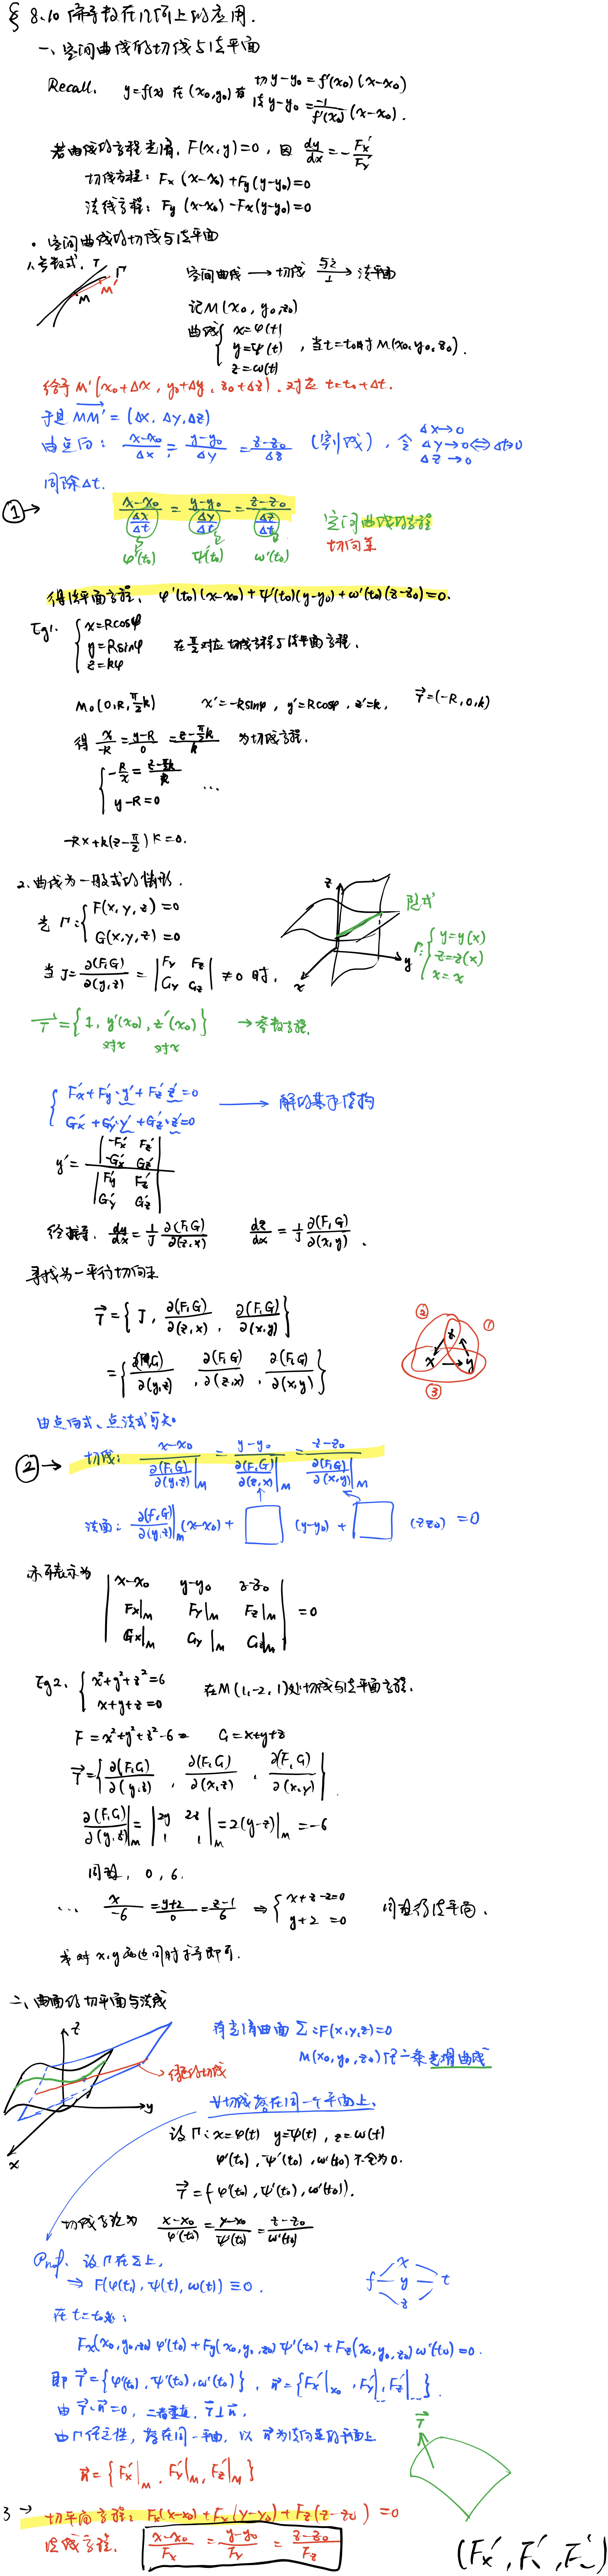 § 8.10 偏导数在几何上的应用.
一、空间曲线的切线与法平面
Recall. y=f(x) 在 (x₀,y₀) 有 切 y-y₀=f'(x₀)(x-x₀)
法 y-y₀=-1/f'(x₀) (x-x₀).
若曲线的方程光滑, F(x,y)=0, 因 dy/dx=-Fx'/Fy'
切线方程: Fx(x-x₀)+Fy(y-y₀)=0
法线方程: Fy(x-x₀)-Fx(y-y₀)=0
· 空间曲线的切线与法平面
1.参数式. T
M M' Γ
空间曲线 → 切线 与之⊥→ 法平面
记M(x₀,y₀,z₀)
曲线 { x=φ(t)
y=ψ(t) , 当t=t₀时 M(x₀,y₀,z₀).
z=ω(t)
给予 M'(x₀+Δx, y₀+Δy, z₀+Δz). 对应 t=t₀+Δt.
于是 MM'=(Δx,Δy,Δz)
由点向: (x-x₀)/Δx=(y-y₀)/Δy=(z-z₀)/Δz (割线), 令 Δx→0
Δy→0⇔Δt→0
Δz→0
同除Δt.
① → (x-x₀)/(Δx/Δt)=(y-y₀)/(Δy/Δt)=(z-z₀)/(Δz/Δt) 空间曲线的方程
切向量
φ'(t₀) ψ'(t₀) ω'(t₀)
得法平面方程. φ'(t₀)(x-x₀)+ψ'(t₀)(y-y₀)+ω'(t₀)(z-z₀)=0.
Eg1. { x=Rcosφ
y=Rsinφ 在 π/2 对应切线方程与法平面方程.
z=kφ
M₀(0,R,π/2 k) x'=-Rsinφ, y'=Rcosφ, z'=k, T=(-R,0,k)
得 x/-R=(y-R)/0=(z-π/2 k)/k 为切线方程.
y-R=0 …
-Rx+k(z-π/2)k=0.
2.曲线为一般式的情形.
光 Γ: { F(x,y,z)=0
G(x,y,z)=0
z y x
隐式
Γ: { y=y(x)
z=z(x)
x=x
当 J=∂(F,G)/∂(y,z)=|Fy Fz; Gy Gz|≠0 时,
T={1, y'(x₀), z'(x₀)} → 参数方程.
对x 对x
{ Fx'+Fy'·y'+Fz'·z'=0
Gx'+Gy'·y'+Gz'·z'=0 → 解的基于结构
y'=|-Fx' Fz'; -Gx' Gz'| / |Fy' Fz'; Gy' Gz'|
dy/dx=1/J ∂(F,G)/∂(z,x) dz/dx=1/J ∂(F,G)/∂(x,y).
寻找另一平行切向量
T={J, ∂(F,G)/∂(z,x), ∂(F,G)/∂(x,y)}
={∂(F,G)/∂(y,z), ∂(F,G)/∂(z,x), ∂(F,G)/∂(x,y)}
② ① z x → y ③
由点向式、点法式可知
② → 切线: (x-x₀)/(∂(F,G)/∂(y,z)|M)=(y-y₀)/(∂(F,G)/∂(z,x)|M)=(z-z₀)/(∂(F,G)/∂(x,y)|M)
法面: ∂(F,G)/∂(y,z)|M (x-x₀)+□(y-y₀)+□(z-z₀)=0
亦可表示为 |x-x₀ y-y₀ z-z₀
Fx|M Fy|M Fz|M =0
Gx|M Gy|M Gz|M|
Eg2. { x²+y²+z²=6
x+y+z=0 在M(1,-2,1)处切线与法平面方程.
F=x²+y²+z²-6= G=x+y+z
T={∂(F,G)/∂(y,z), ∂(F,G)/∂(x,z), ∂(F,G)/∂(x,y)}
∂(F,G)/∂(y,z)|M=|2y 2z; 1 1|M=2(y-z)|M=-6
同理, 0, 6.
… x/-6=(y+2)/0=(z-1)/6 ⇒ { x+z-2=0
y+2=0 同理得法平面.
或对x,y两边同时求导即可.
二、曲面的切平面与法线
z y x
有光滑曲面 Σ:F(x,y,z)=0
M(x₀,y₀,z₀)任一条光滑曲线
任意的切线
∀切线落在同一个平面上.
设Γ:x=φ(t) y=ψ(t), z=ω(t)
φ'(t₀), ψ'(t₀), ω'(t₀)不全为0.
T={φ'(t₀), ψ'(t₀), ω'(t₀)}.
切线方程为 (x-x₀)/φ'(t₀)=(y-y₀)/ψ'(t₀)=(z-z₀)/ω'(t₀)
Proof. 设Γ在Σ上,
⇒ F(φ(t),ψ(t),ω(t))≡0.
f x y z t
在t=t₀处:
Fx(x₀,y₀,z₀)φ'(t₀)+Fy(x₀,y₀,z₀)ψ'(t₀)+Fz(x₀,y₀,z₀)ω'(t₀)=0.
即 T={φ'(t₀),ψ'(t₀),ω'(t₀)}, n={Fx'|x₀, Fy'|, Fz'|}.
由 T·n=0, 二者垂直, T⊥n,
由Γ任意性, 落在同一平面, 以n为法向量的平面上
T
n={Fx'|M, Fy'|M, Fz'|M}
3 → 切平面方程: Fx(x-x₀)+Fy(y-y₀)+Fz(z-z₀)=0
法线方程. (x-x₀)/Fx=(y-y₀)/Fy=(z-z₀)/Fz
(Fx', F', F')